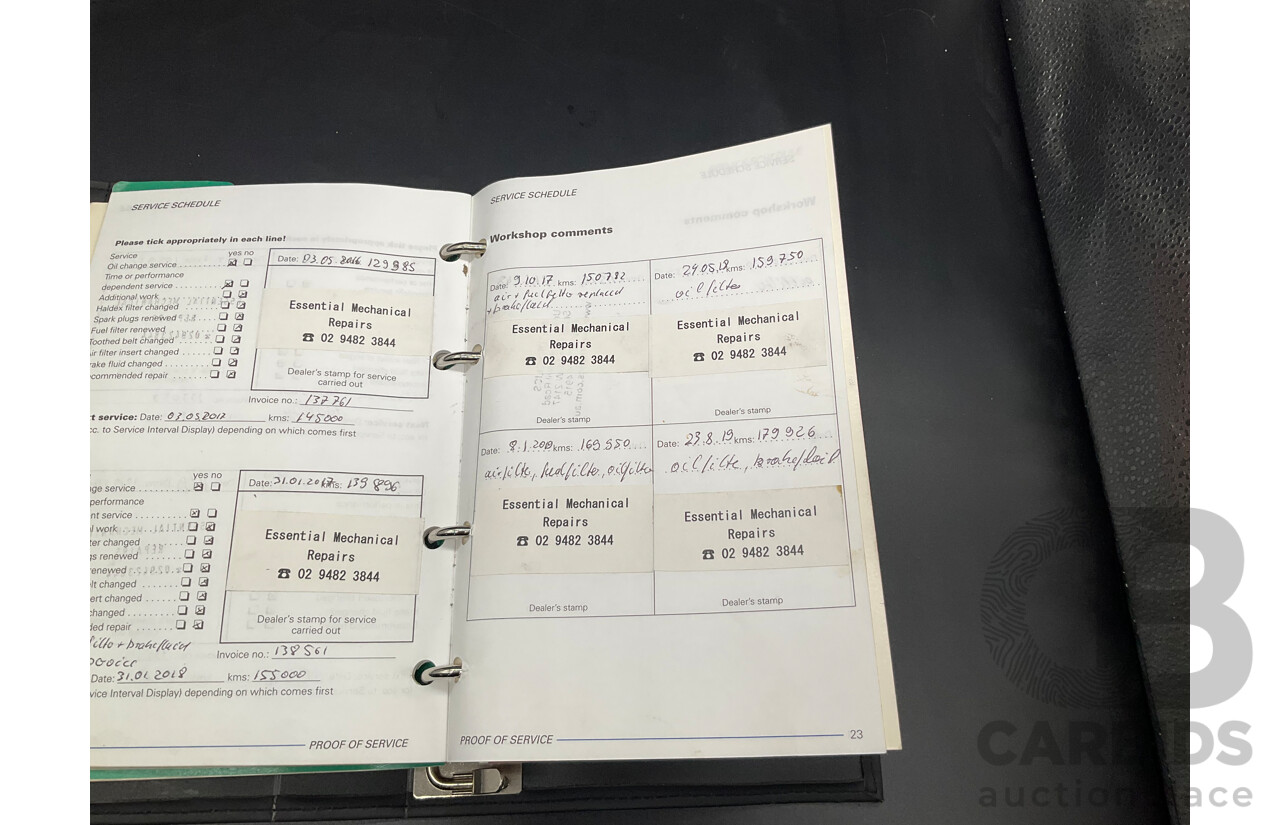 SERVICE SCHEDULE
Please tick appropriately in each line!
Service yes no
Oil change service
Time or performance
dependent service
Additional work
Haldex filter changed
Spark plugs renewed
Fuel filter renewed
Toothed belt changed
ir filter insert changed
rake fluid changed
ecommended repair
Date: 03.05.2016 129985
Essential Mechanical
Repairs
☎ 02 9482 3844
Dealer's stamp for service
carried out
Invoice no.: 137761
t service: Date: 03.05.2017 kms: 145000
cc. to Service Interval Display) depending on which comes first
yes no
ge service
performance
nt service
l work
ter changed
gs renewed
renewed
lt changed
ert changed
changed
ded repair
Date: 31.01.2017 kms: 139896
Essential Mechanical
Repairs
☎ 02 9482 3844
Dealer's stamp for service
carried out
filte + brakefluid
Invoice no.: 138561
Date: 31.01.2018 kms: 155000
vice Interval Display) depending on which comes first
PROOF OF SERVICE
SERVICE SCHEDULE
Workshop comments
Date: 9.10.17 kms: 150782
air + fuelfilte replaced
+ brakefluid
Essential Mechanical
Repairs
☎ 02 9482 3844
Dealer's stamp
Date: 24.05.18 kms: 159750
oilfilte
Essential Mechanical
Repairs
☎ 02 9482 3844
Dealer's stamp
Date: 8.1.2019 kms: 169550
airfilte, fuelfilte, oilfilte
Essential Mechanical
Repairs
☎ 02 9482 3844
Dealer's stamp
Date: 23.8.19 kms: 179926
oilfilte, brakefluid
Essential Mechanical
Repairs
☎ 02 9482 3844
Dealer's stamp
PROOF OF SERVICE 23
CB
CARBIDS
auction place